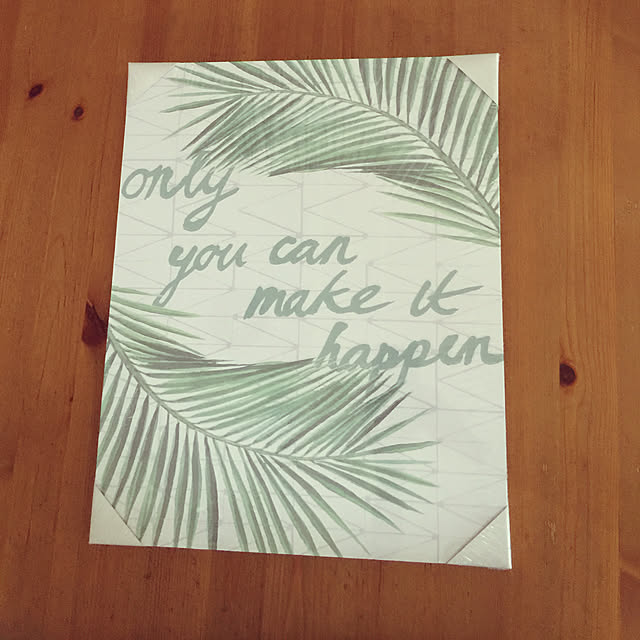 only
you can
make it
happen